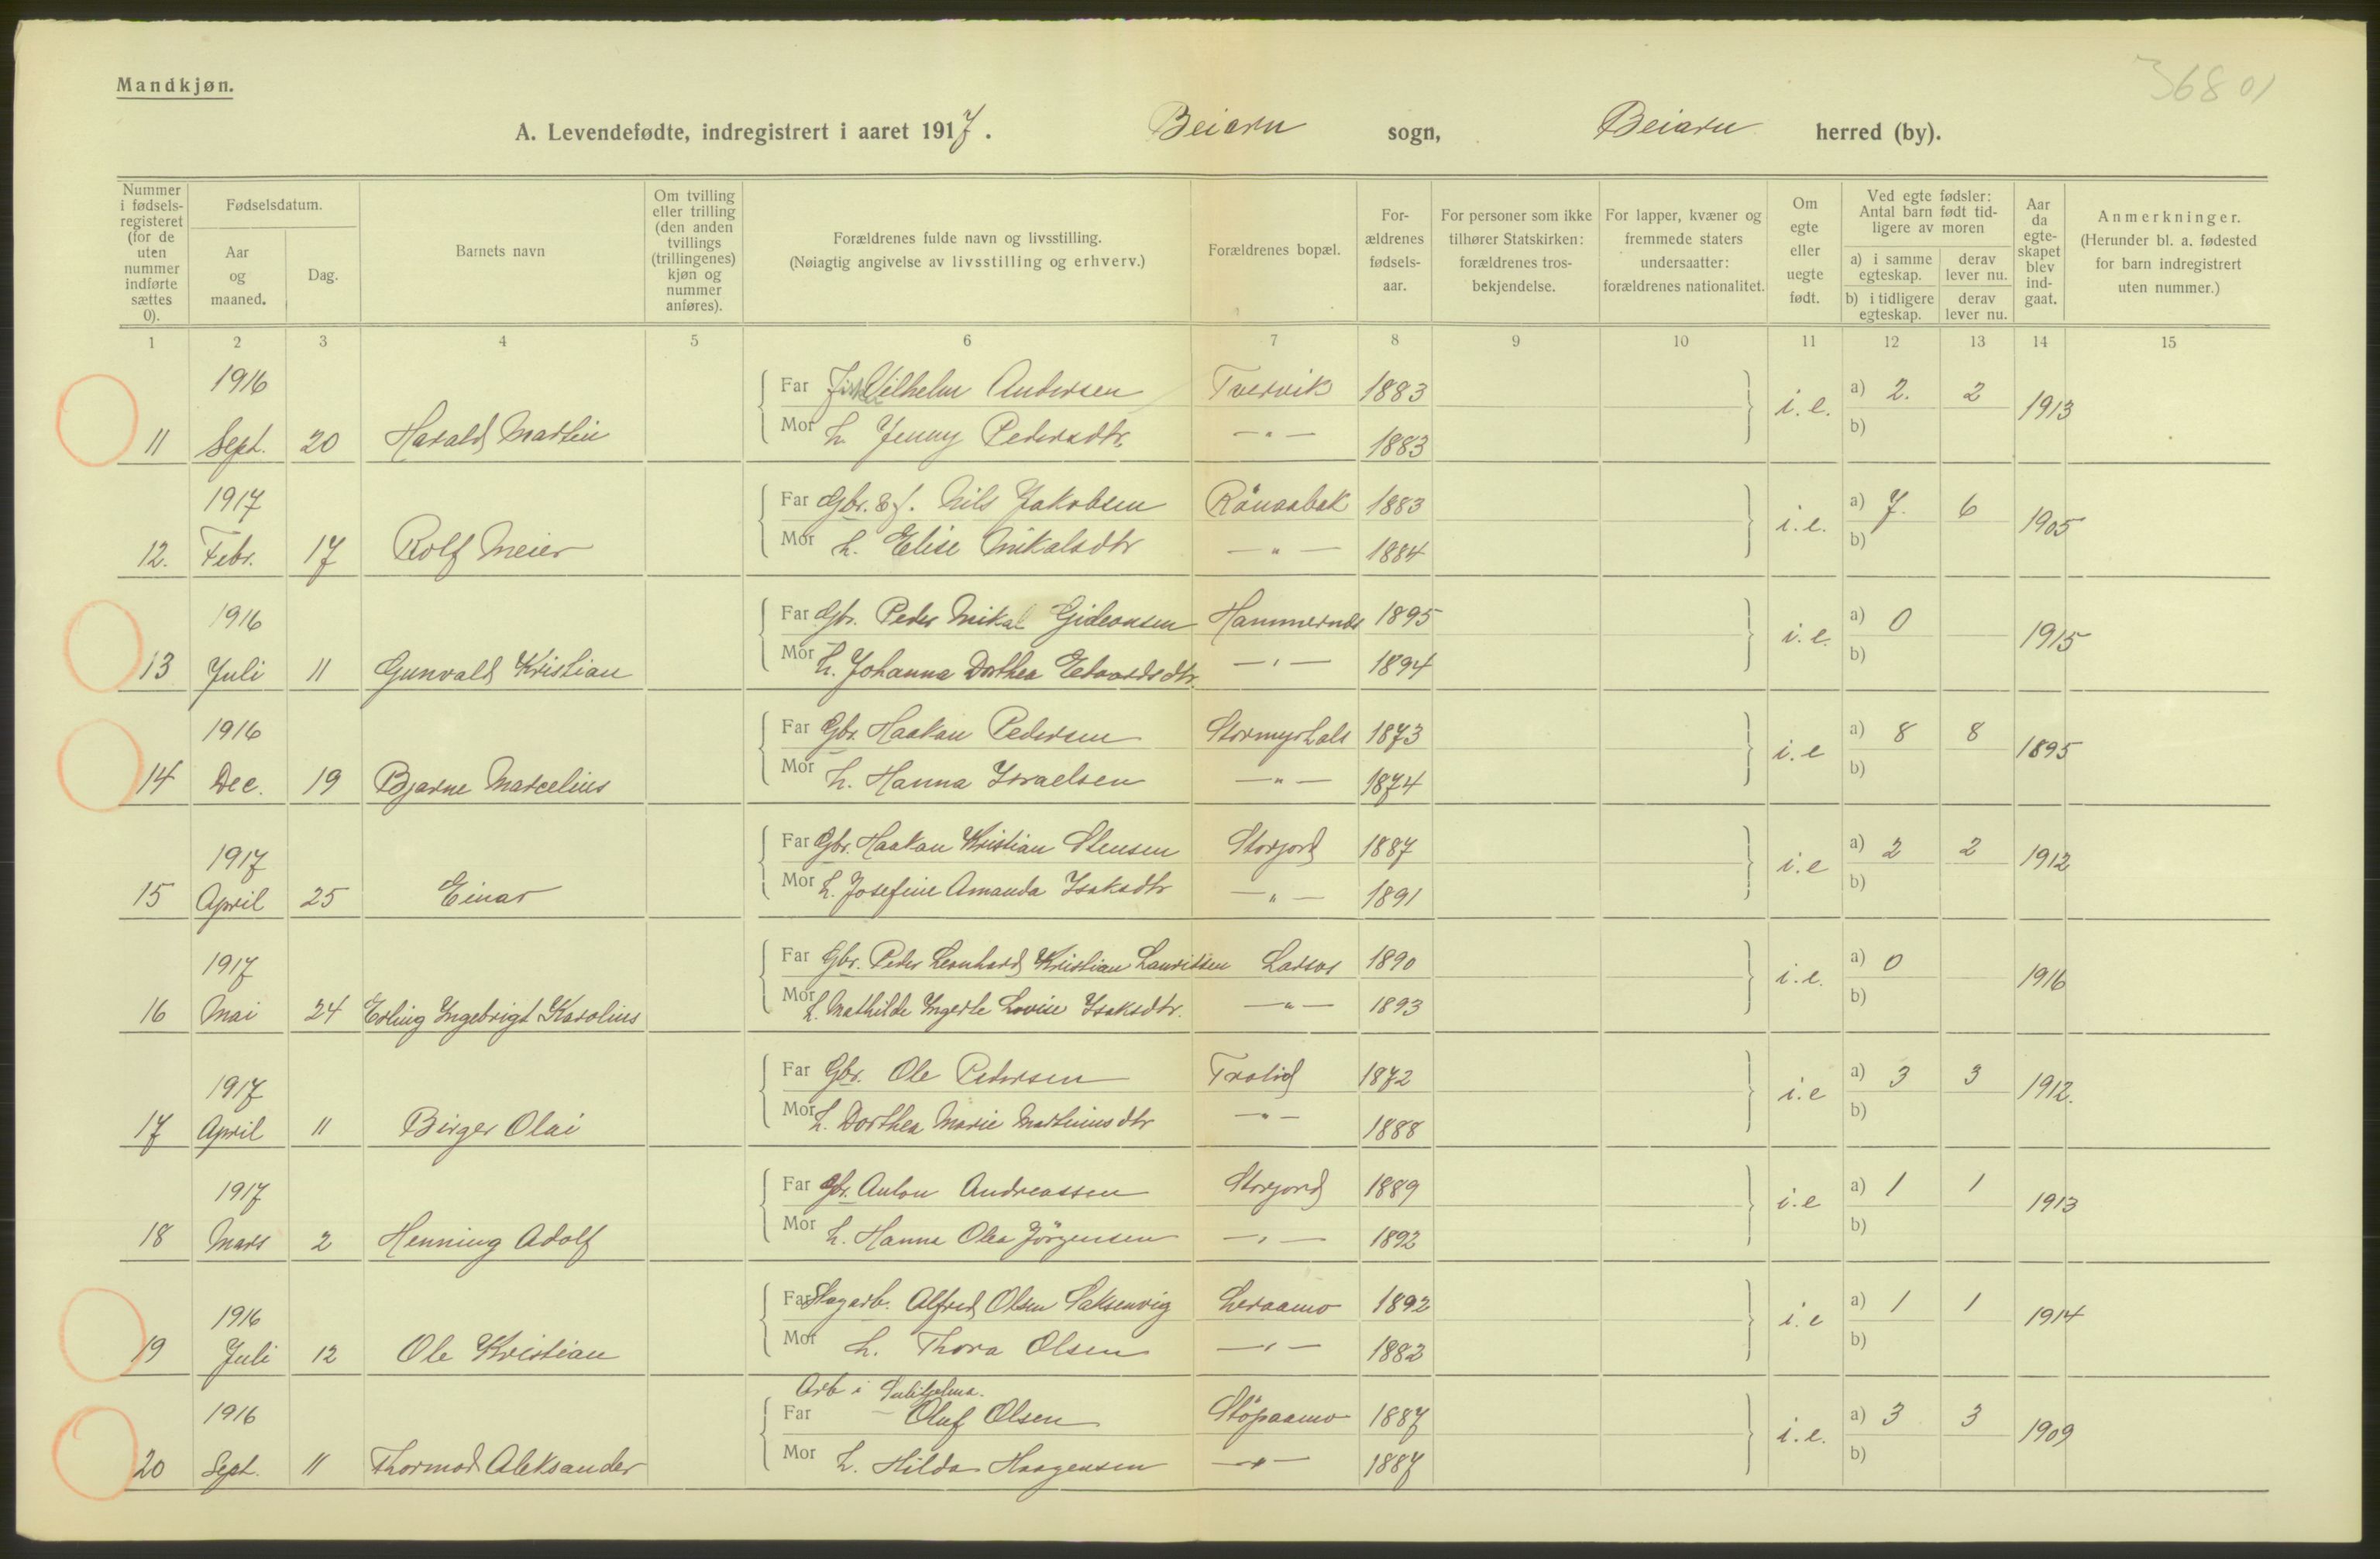 Mandkjøn.
36801
A. Levendefødte, indregistrert i aaret 1917. Beiarn sogn, Beiarn herred (by).
Nummer i fødsels-registeret (for de uten nummer indførte sættes 0).
Fødselsdatum.
Aar og maaned.
Dag.
Barnets navn
Om tvilling eller trilling (den anden tvillings (trillingenes) kjøn og nummer anføres).
Forældrenes fulde navn og livsstilling. (Nøiagtig angivelse av livsstilling og erhverv.)
Forældrenes bopæl.
For-ældrenes fødsels-aar.
For personer som ikke tilhører Statskirken: forældrenes tros-bekjendelse.
For lapper, kvæner og fremmede staters undersaatter: forældrenes nationalitet.
Om egte eller uegte født.
Ved egte fødsler: Antal barn født tid-ligere av moren
a) i samme egteskap.
derav lever nu.
b) i tidligere egteskap.
derav lever nu.
Aar da egte-skapet blev ind-gaat.
Anmerkninger. (Herunder bl. a. fødested for barn indregistrert uten nummer.)
1 2 3 4 5 6 7 8 9 10 11 12 13 14 15
1916 Far Vilhelm Andersen Tvervik 1883 i.e. a) 2. 2 1913
11 Sept. 20 Harald Martin Mor h. Jenny Pedersdtr. —"— 1883 b)
1917 Far Gbr. & f. Nils Jakobsen 1883 i.e. a) 7. 6 1905
12. Febr. 17 Rolf Meier Mor h. Elise Mikalsdtr —"— 1884 b)
1916 Far Gbr. Peder Mikal Gideonsen Hammernes 1895 i.e. a) 0 1915
13 Juli 11 Gunvald Kristian Mor h. Johanna Dorthea Edvardsdtr. —"— 1894 b)
1916 Far Gbr. Haakon Pedersen 1873 i.e a) 8 8 1895
14 Dec. 19 Bjarne Marcelius Mor h. Hanna Israelsen —"— 1874 b)
1917 Far Gbr. Haakon Kristian Stensen Storjord 1887 i.e a) 2 2 1912
15 April 25 Einar Mor h. Josefine Amanda Isaksdtr —"— 1891 b)
1917 Far Gbr. Peder Leonhard Kristian Lauritsen Larsos 1890 i.e. a) 0 1916
16 Mai 24 Erling Ingebrigt Karolius Mor h. Mathilde Ingerte Lovise Isaksdtr. —"— 1893 b)
1917 Far Gbr. Ole Pedersen Trolid 1872 i.e a) 3 3 1912.
17 April 11 Birger Olai Mor h. Dorthea Marie Martinusdtr —"— 1888 b)
1917 Far Gbr. Anton Andreassen Storjord 1889 i.e a) 1 1 1913
18 Mars 2 Henning Adolf Mor h. Hanna Olea Jörgensen —"— 1892 b)
1916 Far Alfred Olsen Saksenvig Leraamo 1892 i.e a) 1 1 1914
19 Juli 12 Ole Kristian Mor h. Thora Olsen —"— 1882 b)
Arb i Sulitjelma.
1916 Far Oluf Olsen Stöpaamo 1887 i.e. a) 3 3 1909
20 Sept. 11 Thormod Aleksander Mor h. Hilda Haagensen —"— 1887 b)